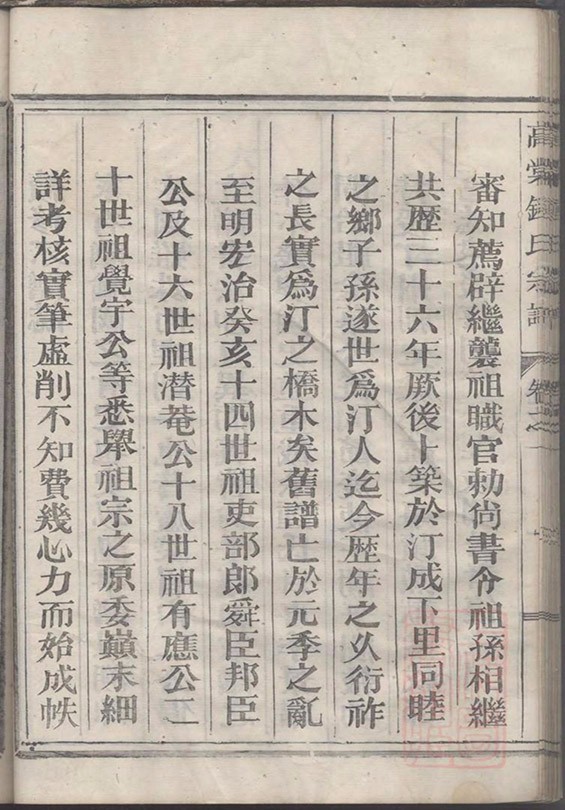 審知薦辟繼襲祖職官勑尙書令祖孫相繼
共歴三十六年厥後卜築於汀成下里同睦
之鄉子孫遂世爲汀人迄今歴年之乆衍祚
之長實爲汀之橋木矣舊譜亡於元季之亂
至明宏治癸亥十四世祖吏部郎舜臣邦臣
公及十六世祖潜菴公十八世祖有應公二
十世祖覺宇公等悉舉祖宗之原委巔末細
詳考核實筆虛削不知費幾心力而始成帙